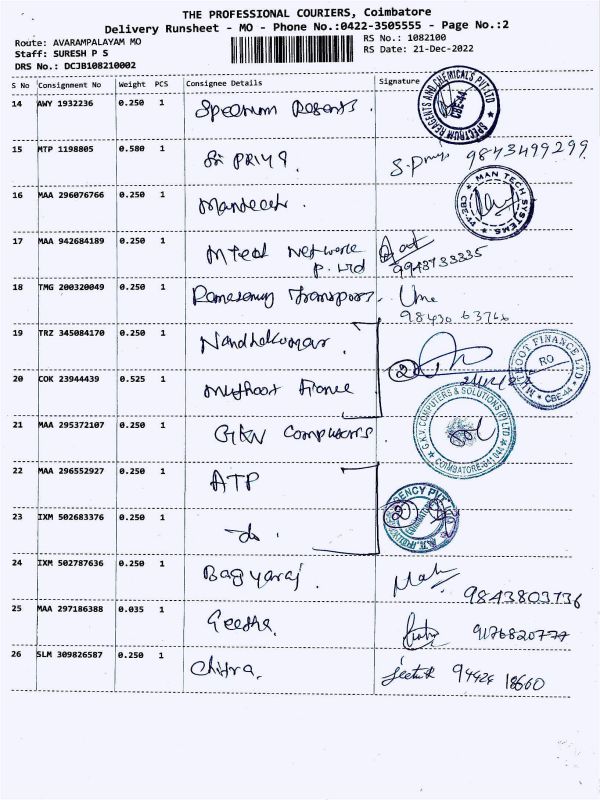 THE PROFESSIONAL COURIERS, Coimbatore
Delivery Runsheet - MO - Phone No.:0422-3505555 - Page No.:2
Route: AVARAMPALAYAM MO RS No.: 1082100
Staff: SURESH P S RS Date: 21-Dec-2022
DRS No.: DCJB108210002
S No Consignment No Weight PCS Consignee Details Signature
14 AWY 1932236 0.250 1 Spectrum
SPECTRUM REAGENTS AND CHEMICALS PVT.LTD CBE-44
15 MTP 1198805 0.580 1 Sri PRIYA. S.Priya 9843499299
16 MAA 296076766 0.250 1
MAN TECH SYSTEMS CBE-44
17 MAA 942684189 0.250 1 Mteck Network
P. Ltd
18 TMG 200320049 0.250 1 Ramasamy Transport. Uma
98430 63766
19 TRZ 345084170 0.250 1 Nandhakumar.
20 COK 23944439 0.525 1 Muthoot Finance 2
MUTHOOT FINANCE LTD RO CBE-44
21 MAA 295372107 0.250 1 GKV Computers.
G.K.V. COMPUTERS & SOLUTIONS (P) LTD COIMBATORE-641 045
22 MAA 296552927 0.250 1 ATP
23 IXM 502683376 0.250 1 do. 2
24 IXM 502787636 0.250 1 Bagyaraj. 9843803736
25 MAA 297186388 0.035 1 Geetha. 9176820777
26 SLM 309826587 0.250 1 Chitra. 94424 18660